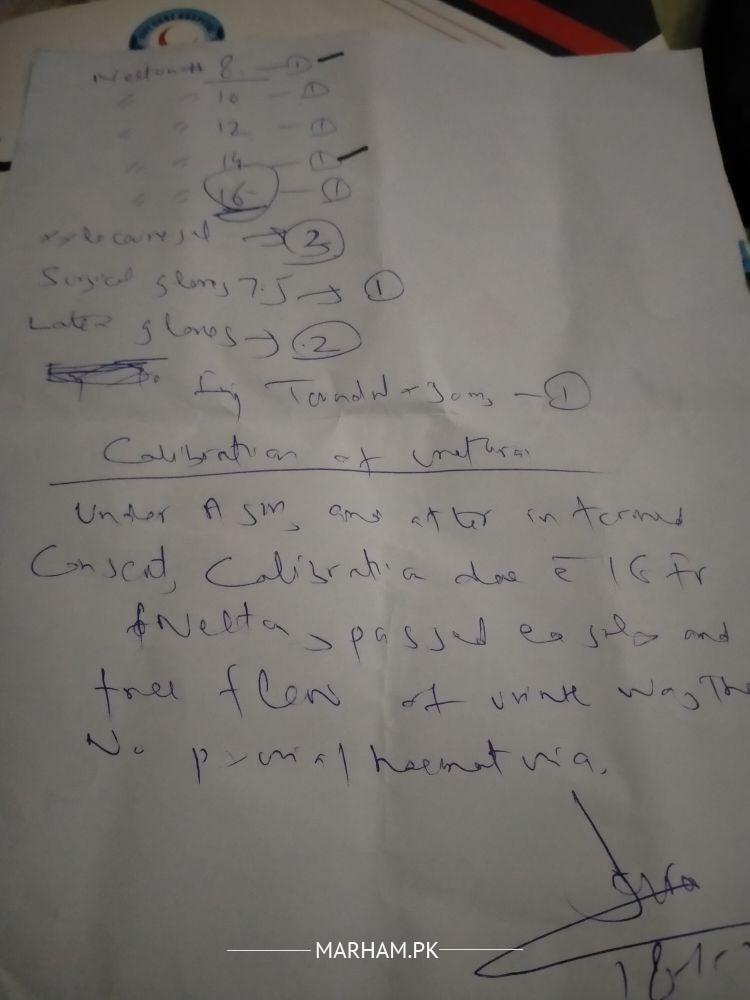 Nelaton # 8 — ①
" " 10 — ①
" " 12 — ①
" " 14 — ①
" " 16 — ①
Surgical gloves 7.5 → ①
Latex gloves → ②
Inj — ①
Calibration of urethra
Under ASM, and after informed
Consent, Calibration done c̄ 16 Fr
Nelton, passed easily and
free flow of urine was
No p haematuria.
MARHAM.PK